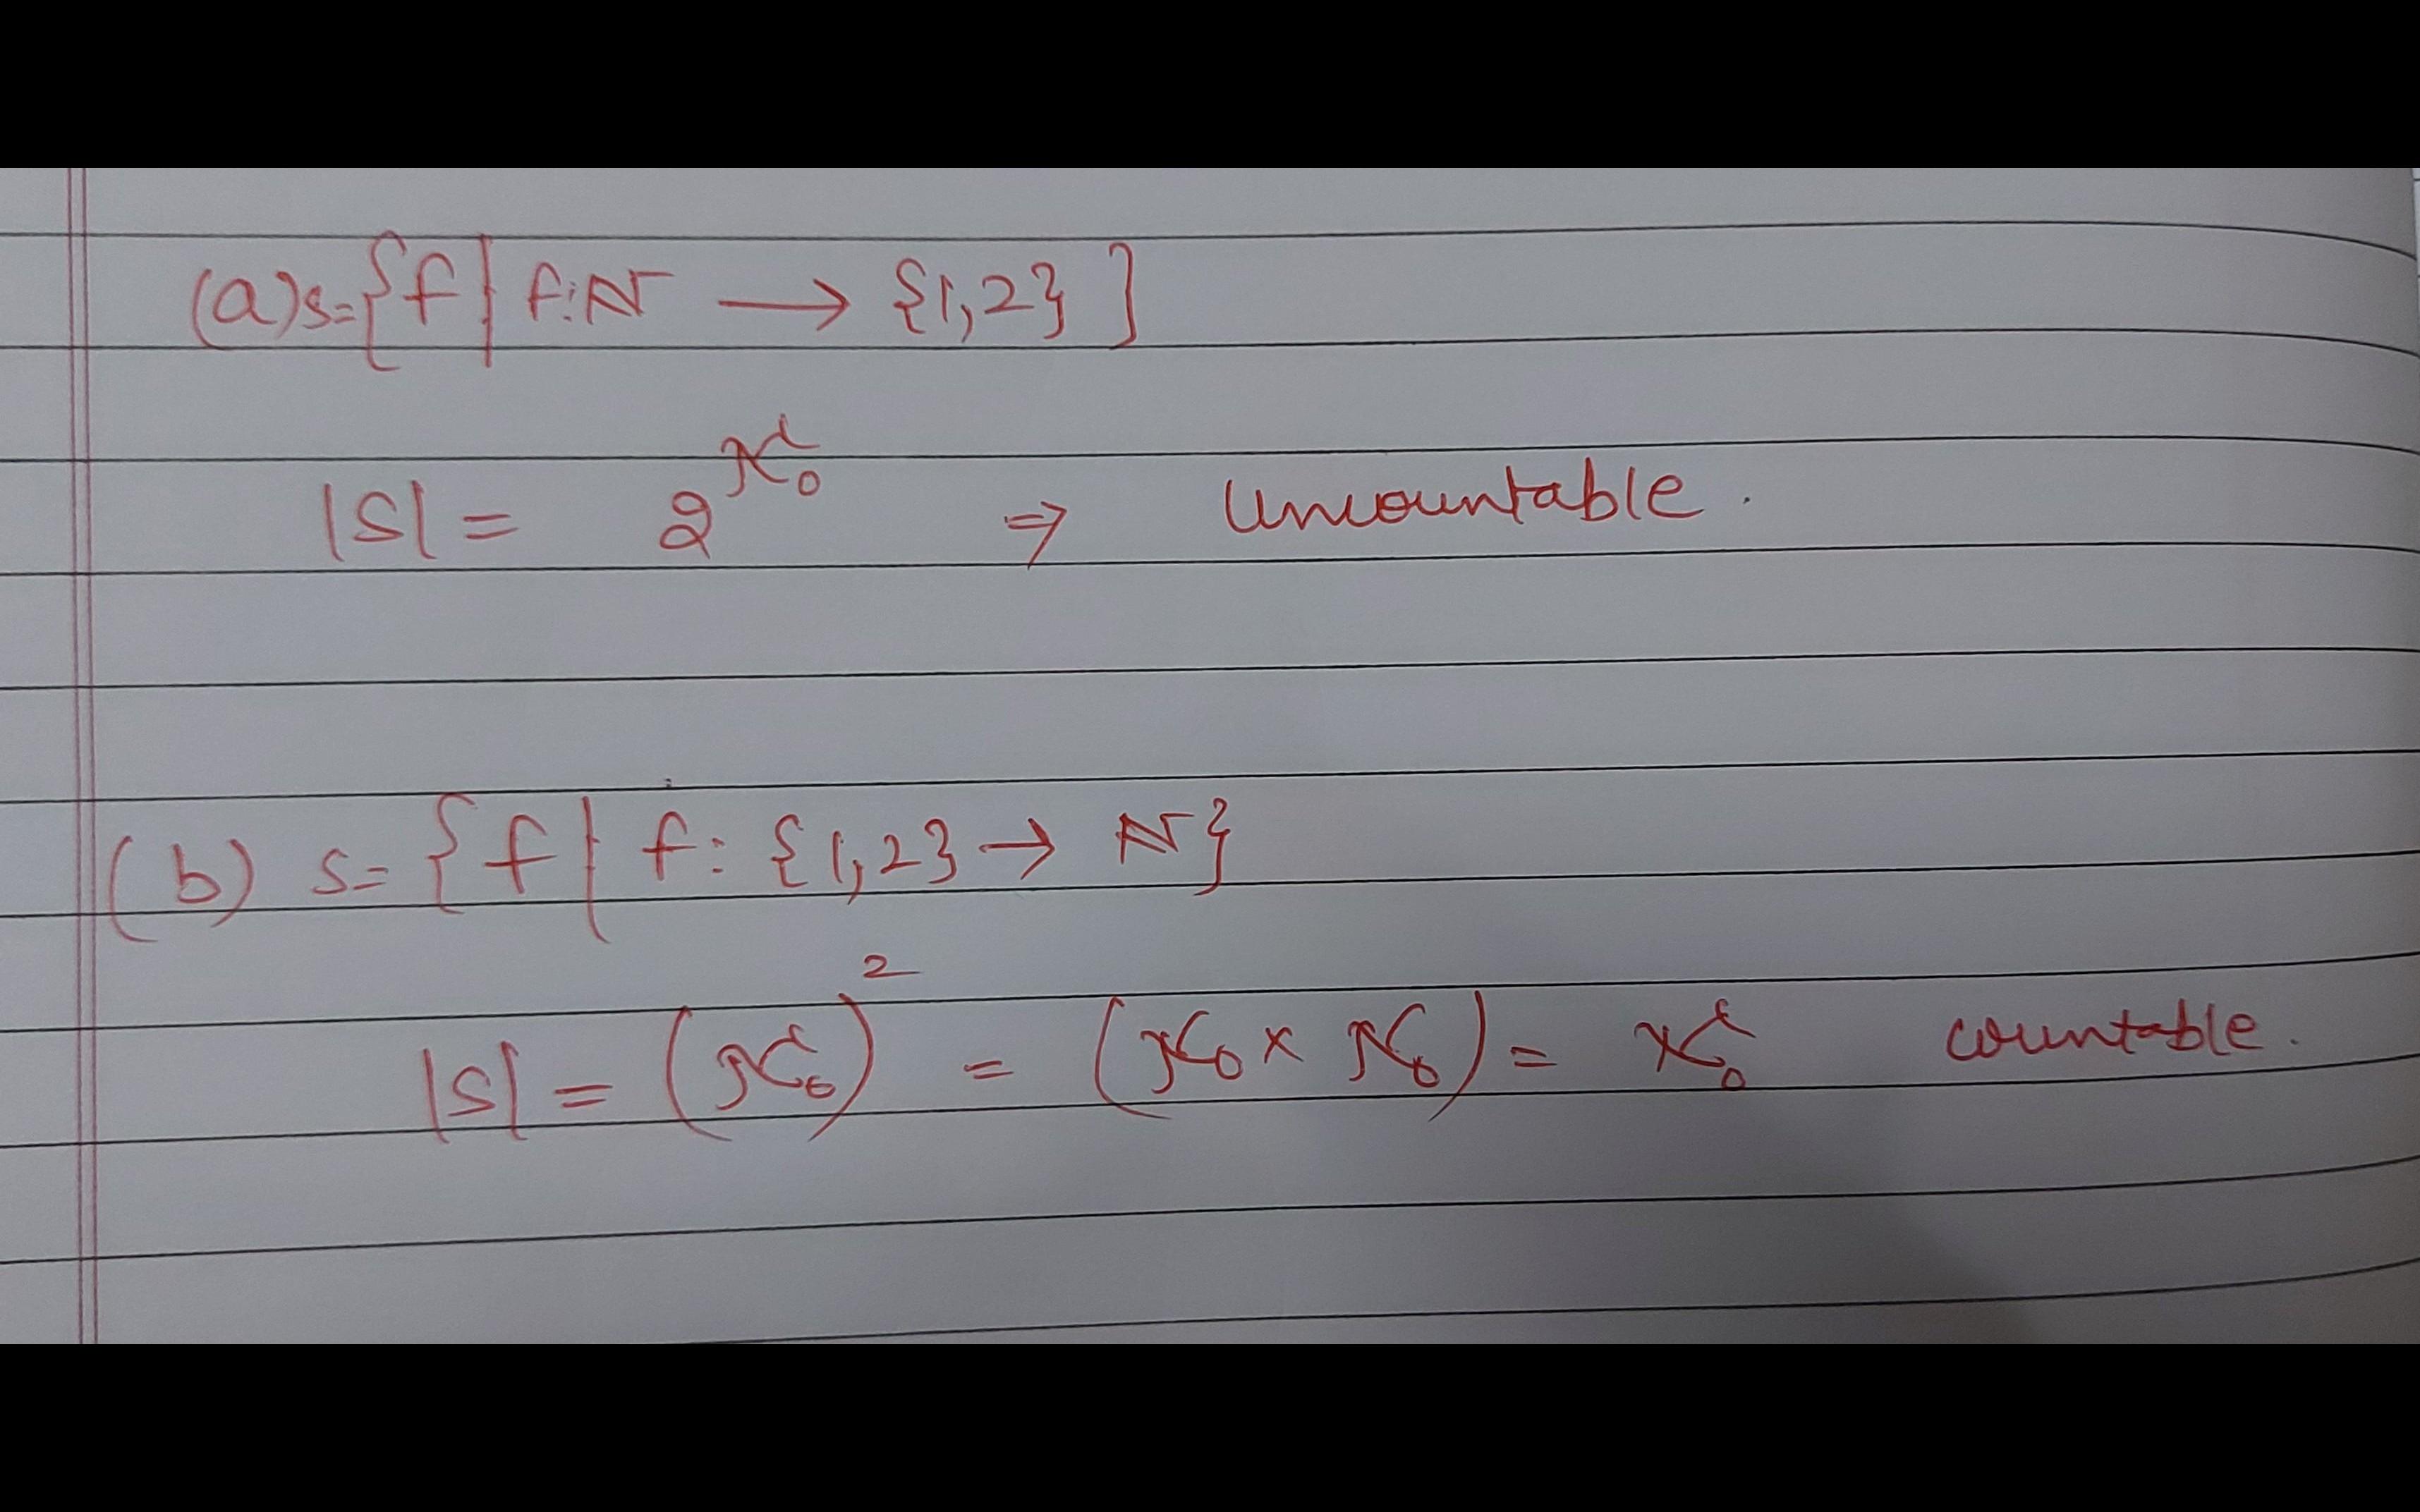 (a) S={f | f:ℕ → {1,2} ]
|S| = 2^ℵ₀ ⇒ Uncountable.
(b) S={f | f: {1,2} → ℕ}
|S| = (ℵ₀)² = (ℵ₀ × ℵ₀) = ℵ₀ countable.